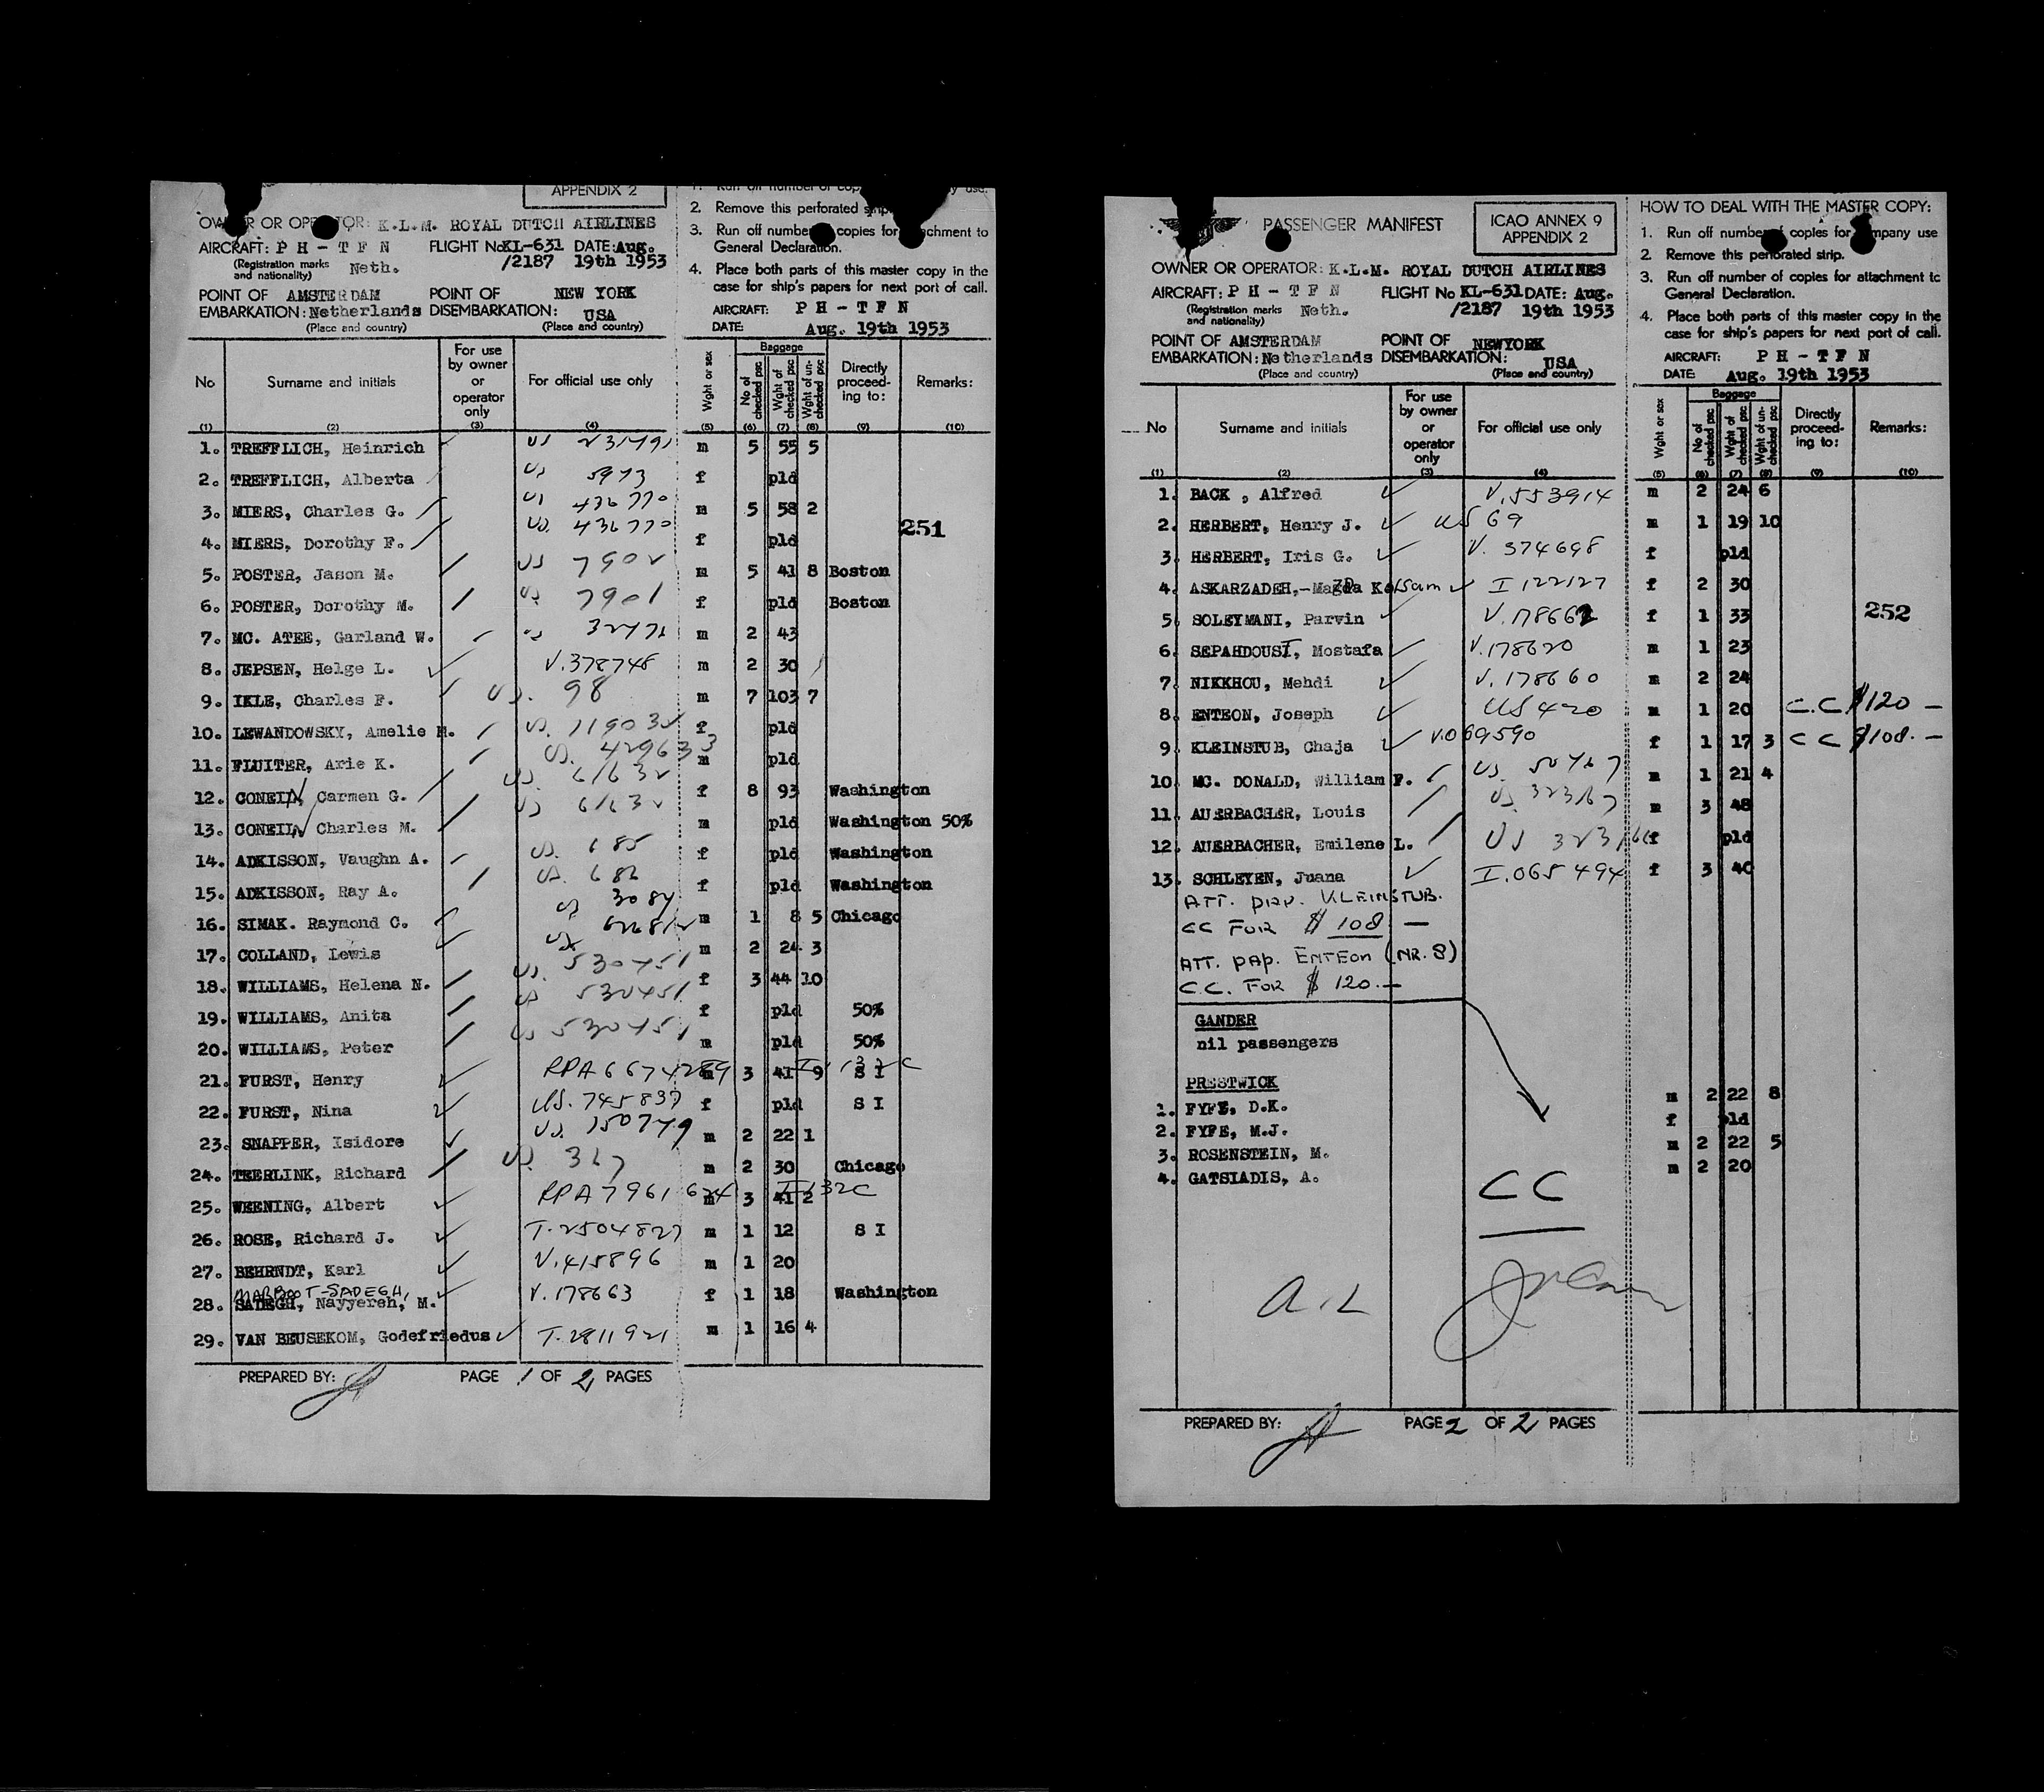 APPENDIX 2
OWNER OR OPERATOR: K.L.M. ROYAL DUTCH AIRLINES
AIRCRAFT: P H - T F N FLIGHT No KL-631 DATE: Aug.
(Registration marks and nationality) Neth. /2187 19th 1953
POINT OF EMBARKATION: AMSTERDAM Netherlands POINT OF DISEMBARKATION: NEW YORK USA
(Place and country) (Place and country)
2. Remove this perforated strip.
3. Run off number copies for attachment to
General Declaration.
4. Place both parts of this master copy in the
case for ship's papers for next port of call.
AIRCRAFT: P H - T F N
DATE: Aug. 19th 1953
No Surname and initials For use by owner or operator only For official use only Wght or sex Baggage No of checked psc Wght of checked psc Wght of un-checked psc Directly proceed-ing to: Remarks:
(1) (2) (3) (4) (5) (6) (7) (8) (9) (10)
1. TREFFLICH, Heinrich US m 5 55 5
2. TREFFLICH, Alberta US 5973 f pld
3. MIERS, Charles G. US 436770 m 5 58 2
251
4. MIERS, Dorothy F. US. 436770 f pld
5. POSTER, Jason M. US 7902 m 5 41 8 Boston
6. POSTER, Dorothy M. US 7901 f pld Boston
7. MC. ATEE, Garland W. US m 2 43
8. JEPSEN, Helge L. V.378748 m 2 30
9. IKLE, Charles F. US. 98 m 7 103 7
10. LEWANDOWSKY, Amelie M. US. 119032 f pld
11. FLUITER, Arie K. US. 429633 m pld
12. CONEIN, Carmen G. US. 61632 f 8 93 Washington
13. CONEIN, Charles M. US 61632 m pld Washington 50%
14. ADKISSON, Vaughn A. US. 685 f pld Washington
15. ADKISSON, Ray A. US. 686 f pld Washington
16. SIMAK. Raymond C. US 3084 m 1 8 5 Chicago
17. COLLAND, Lewis US m 2 24 3
18. WILLIAMS, Helena N. US. 530451 f 3 44 10
19. WILLIAMS, Anita US 530451 f pld 50%
20. WILLIAMS, Peter US 530451 m pld 50%
21. FURST, Henry RPA6674289 m 3 41 9 I 132 C S I
22. FURST, Nina US. 745837 f pld S I
23. SNAPPER, Isidore US. 150749 m 2 22 1
24. TEERLINK, Richard US. 367 m 2 30 Chicago
25. WEENING, Albert RPA7961624 m 3 41 2 I 132C
26. ROSE, Richard J. T.2504827 m 1 12 S I
27. BEHRNDT, Karl V.415896 m 1 20
MARBOOT-SADEGH,
28. SADEGH, Nayyereh, M. V.178663 f 1 18 Washington
29. VAN BEUSEKOM, Godefriedus T.2811921 m 1 16 4
PREPARED BY: PAGE 1 OF 2 PAGES
PASSENGER MANIFEST
ICAO ANNEX 9
APPENDIX 2
OWNER OR OPERATOR: K.L.M. ROYAL DUTCH AIRLINES
AIRCRAFT: P H - T F N FLIGHT No KL-631 DATE: Aug.
(Registration marks and nationality) Neth. /2187 19th 1953
POINT OF EMBARKATION: AMSTERDAM Netherlands POINT OF DISEMBARKATION: NEWYORK USA
(Place and country) (Place and country)
HOW TO DEAL WITH THE MASTER COPY:
1. Run off number of copies for company use
2. Remove this perforated strip.
3. Run off number of copies for attachment to
General Declaration.
4. Place both parts of this master copy in the
case for ship's papers for next port of call.
AIRCRAFT: P H - T F N
DATE: Aug. 19th 1953
No Surname and initials For use by owner or operator only For official use only Wght or sex Baggage No of checked psc Wght of checked psc Wght of un-checked psc Directly proceed-ing to: Remarks:
(1) (2) (3) (4) (5) (6) (7) (8) (9) (10)
1. BACK , Alfred V.553914 m 2 24 6
2. HERBERT, Henry J. US 69 m 1 19 10
3. HERBERT, Iris G. V. 374698 f pld
4. ASKARZADEH, I 122127 f 2 30
252
5. SOLEYMANI, Parvin V.178662 f 1 33
6. SEPAHDOUSI, Mostafa V.178620 m 1 23
7. NIKKHOU, Mehdi V. 178660 m 2 24
8. ENTEON, Joseph US 420 m 1 20 C.C. $120 —
9. KLEINSTUB, Chaja V.069590 f 1 17 3 CC $108.—
10. MC. DONALD, William F. US. m 1 21 4
11. AUERBACHER, Louis US. 32367 m 3 48
12. AUERBACHER, Emilene L. US 32366 f pld
13. SCHLEYEN, Juana I.065494 f 3 40
ATT. pap. KLEINSTUB.
CC FOR $ 108 —
ATT. pap. ENTEON (NR. 8)
C.C. FOR $ 120.—
GANDER
nil passengers
PRESTWICK
1. FYFE, D.K. m 2 22 8
2. FYFE, M.J. f pld
3. ROSENSTEIN, M. m 2 22 5
4. GATSIADIS, A. m 2 20
CC
A.L
PREPARED BY: PAGE 2 OF 2 PAGES